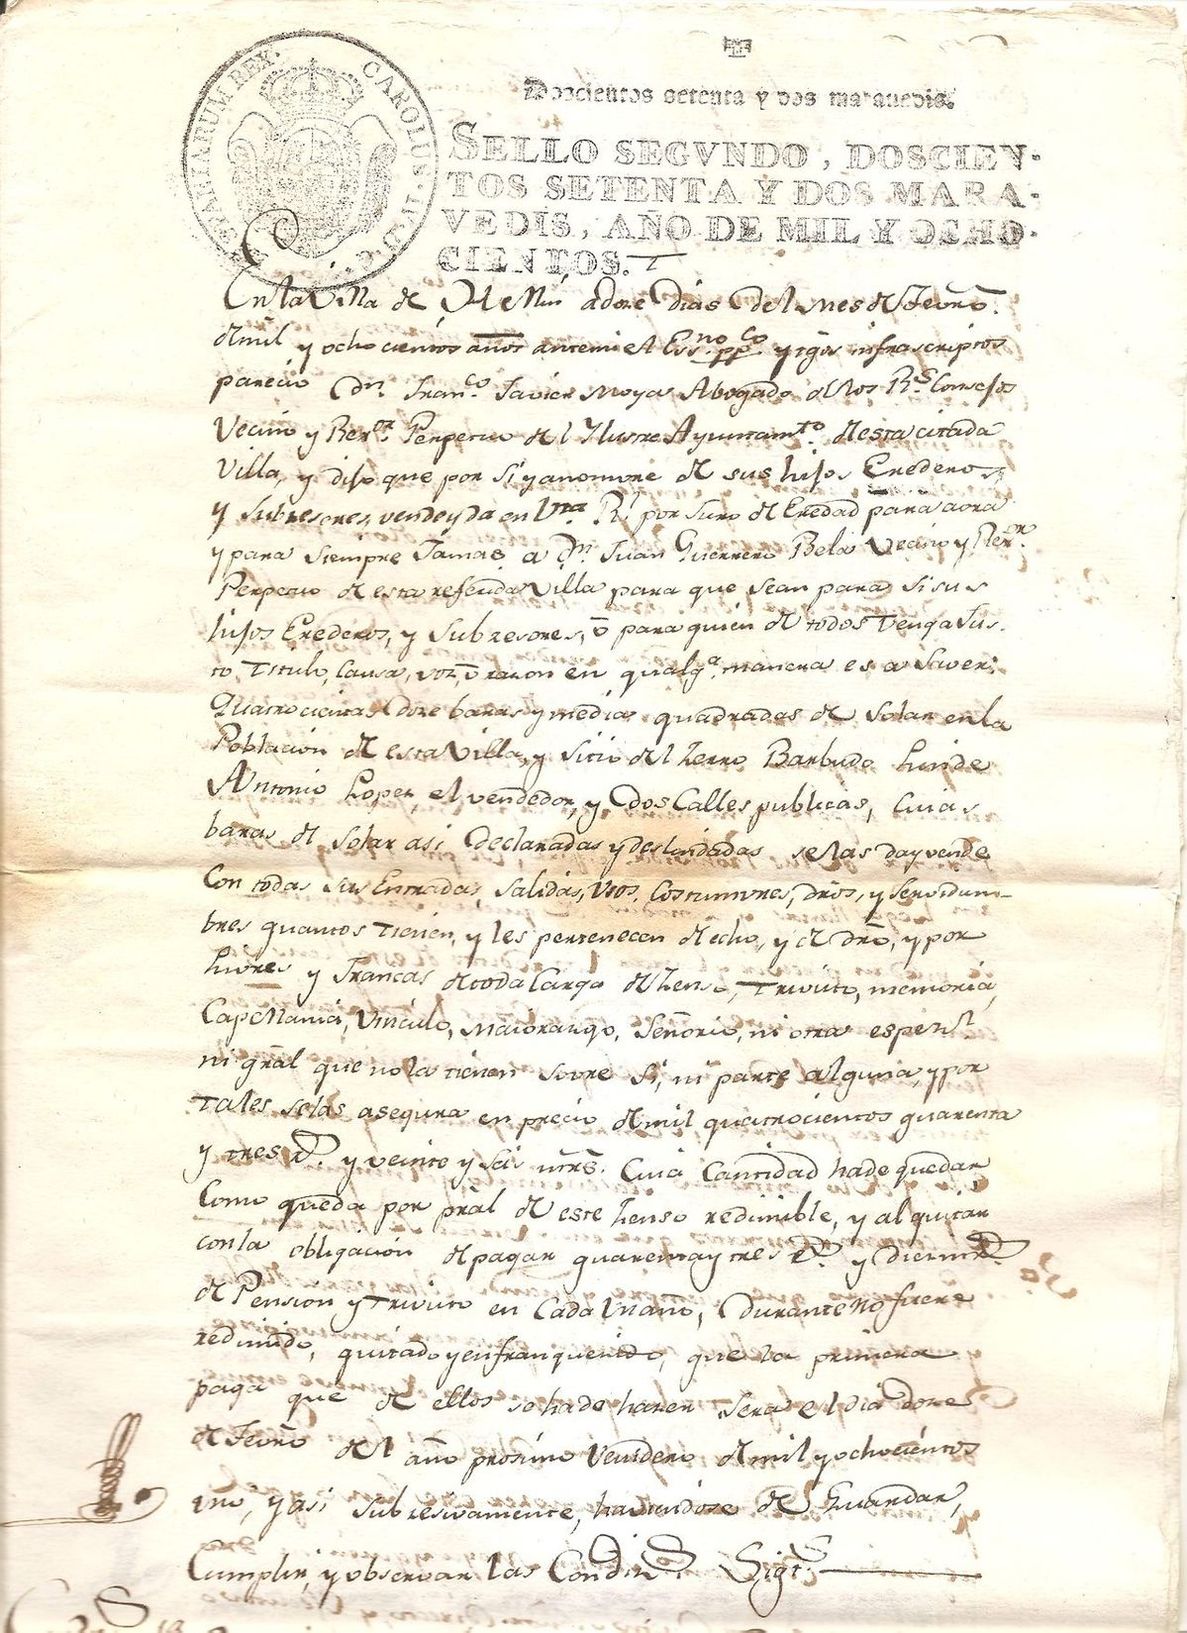 HISPANIARUM REX. CAROLUS. IV. D. G.
Doscientos setenta y dos maravedis.
SELLO SEGVNDO, DOSCIEN-
TOS SETENTA Y DOS MARA-
VEDIS, AÑO DE MIL Y OCHO-
CIENTOS.
En la Villa de a doze dias del mes de Febro.
de mil y ochocientos años ante mi el Essno. ppco. y tgos infrascriptos
parecio Dn. Franco. Javier Moya Abogado de los Rs. Consejos
Vecino y Rexor. Perpetuo del Ilustre Ayuntamto. de esta citada
Villa, y dijo que por si y a nomvre de sus hijos Erederos
y subzesores, vende y da en Vta. Rl. por Juro de Eredad para aora
y para siempre Jamas a Dn. Juan Guerrero Bela Vecino y Rexor.
Perpetuo de esta referida Villa para que sean para si sus
hijos Erederos, y Subzesores, ó para quien de todos tenga Jus-
to, Titulo, Causa, voz, ó razon en qualqa. manera es a Saver:
Quatrocientas doze baras y media quadradas de Solar en la
Poblacion de esta Villa, y Sitio del Zerro Barbudo linde
Antonio Lopez, el vendedor, y dos Calles publicas, Cuias
baras de Solar asi declaradas y deslindadas se las da y vende
Con todas sus Entradas, Salidas, Usos, Costumvres, dros, y Servidum-
bres quantos tienen, y les pertenecen de echo, y de dro, y por
livres y francas de toda Carga de Zenso, Trivuto, memoria,
Capellania, Vinculo, Maiorazgo, Señorio, ni otra espezl.
ni gral que no la tienen sovre si, ni parte alguna, y por
tales se las asegura en precio de mil quatrocientos quarenta
y tres rs. y veinte y seis mrs. Cuia Cantidad ha de quedar,
Como queda por pral de este Zenso redimible, y al quitar
con la obligacion de pagar quarenta y tres rs. y diez mrs.
de Pension y Trivuto en Cada Un año, durante no fuere
redimido, quitado y enfranquecido, que la primera
paga que de ellos se ha de hazer sera el dia doze
de Febro del año proximo Venidero de mil y ochocientos
uno, y asi subzesivamente, haviendose de Guardar,
Cumplir, y observar las Condizs. Sigts.